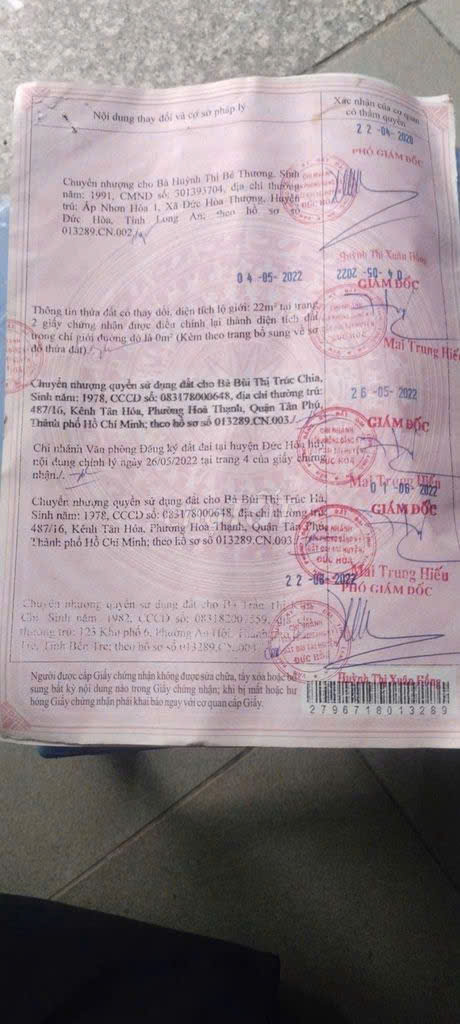 Nội dung thay đổi và cơ sở pháp lý
Xác nhận của cơ quan
có thẩm quyền
22-04-2020
PHÓ GIÁM ĐỐC
Chuyển nhượng cho Bà Huỳnh Thị Bé Thương, Sinh
năm: 1991, CMND số: 301393704, địa chỉ thường
trú: Ấp Nhơn Hòa 1, Xã Đức Hòa Thượng, Huyện
Đức Hòa, Tỉnh Long An; theo hồ sơ số
013289.CN.002./.
Huỳnh Thị Xuân Hồng
04-05-2022
04-05-2022
GIÁM ĐỐC
Thông tin thửa đất có thay đổi, diện tích lộ giới: 22m² tại trang
2 giấy chứng nhận được điều chỉnh lại thành diện tích đất
trong chỉ giới đường đỏ là 0m² (Kèm theo trang bổ sung về sơ
đồ thửa đất)
ĐỨC HOÀ
Mai Trung Hiếu
26-05-2022
Chuyển nhượng quyền sử dụng đất cho Bà Bùi Thị Trúc Chia,
Sinh năm: 1978, CCCD số: 083178000648, địa chỉ thường trú:
487/16, Kênh Tân Hóa, Phường Hoà Thạnh, Quận Tân Phú,
Thành phố Hồ Chí Minh; theo hồ sơ số 013289.CN.003./.
GIÁM ĐỐC
CHI NHÁNH
ĐỨC HOÀ
Chi nhánh Văn phòng Đăng ký đất đai tại huyện Đức Hòa hủy
nội dung chỉnh lý ngày 26/05/2022 tại trang 4 của giấy chứng
nhận./.
Mai Trung Hiếu
01-06-2022
GIÁM ĐỐC
Chuyển nhượng quyền sử dụng đất cho Bà Bùi Thị Trúc Hà,
Sinh năm: 1978, CCCD số: 083178000648, địa chỉ thường trú:
487/16, Kênh Tân Hóa, Phường Hoà Thạnh, Quận Tân Phú,
Thành phố Hồ Chí Minh; theo hồ sơ số 013289.CN.003./.
CHI NHÁNH
ĐỨC HOÀ
Mai Trung Hiếu
22-08-2022
PHÓ GIÁM ĐỐC
Chuyển nhượng quyền sử dụng đất cho Bà Trần Thị
Sinh năm: 1982, CCCD số: 083182007359, địa chỉ
thường trú: 123 Khu phố 6, Phường An Hội, Thành phố
Tre, Tỉnh Bến Tre; theo hồ sơ số 013289.CN.004
CHI NHÁNH
ĐỨC HOÀ
Huỳnh Thị Xuân Hồng
Người được cấp Giấy chứng nhận không được sửa chữa, tẩy xóa hoặc bổ
sung bất kỳ nội dung nào trong Giấy chứng nhận; khi bị mất hoặc hư
hỏng Giấy chứng nhận phải khai báo ngay với cơ quan cấp Giấy.
2796718013289